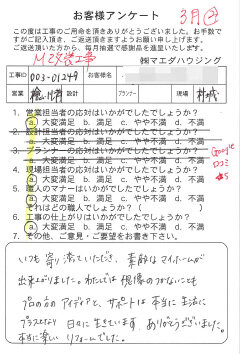 お客様アンケート
3月②
この度は工事のご用命を頂きありがとうございました。お手数で
すがご記入頂き、ご返送頂きますようお願い申し上げます。
ご返送頂いた方から、毎月抽選で感謝品を進呈いたします。
㈱マエダハウジング
工事ID 003-01249 お客様名:
営業 設計 プランナー 現場 村城
1. 営業担当者の応対はいかがでしたでしょうか?
a. 大変満足 b. 満足 c. やや不満 d. 不満
2. 設計担当者の応対はいかがでしたでしょうか?
a. 大変満足 b. 満足 c. やや不満 d. 不満
3. プランナーの応対はいかがでしたでしょうか?
a. 大変満足 b. 満足 c. やや不満 d. 不満
4. 現場担当者の応対はいかがでしたでしょうか?
a. 大変満足 b. 満足 c. やや不満 d. 不満
5. 職人のマナーはいかがでしたでしょうか?
a. 大変満足 b. 満足 c. やや不満 d. 不満
それはどの職人でしょうか?( )
6. 工事の仕上がりはいかがでしたでしょうか?
a. 大変満足 b. 満足 c. やや不満 d. 不満
7. その他、ご意見・ご要望をお書き下さい。
Google
口コミ
いつも寄り添っていただき、素敵なマイホームが
出来上がりました。わたしでは想像のつかないことも
プロの方のアイデアと、サポートは本当に生活に
プラスになり日々に生きています。ありがとうございました。
本当に楽しいリフォームでした。